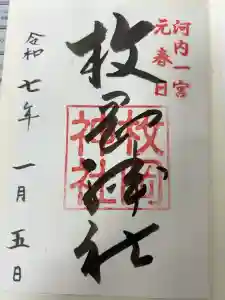 河内一宮
元春日
枚岡神社
枚岡
神社
令和七年 一月五日